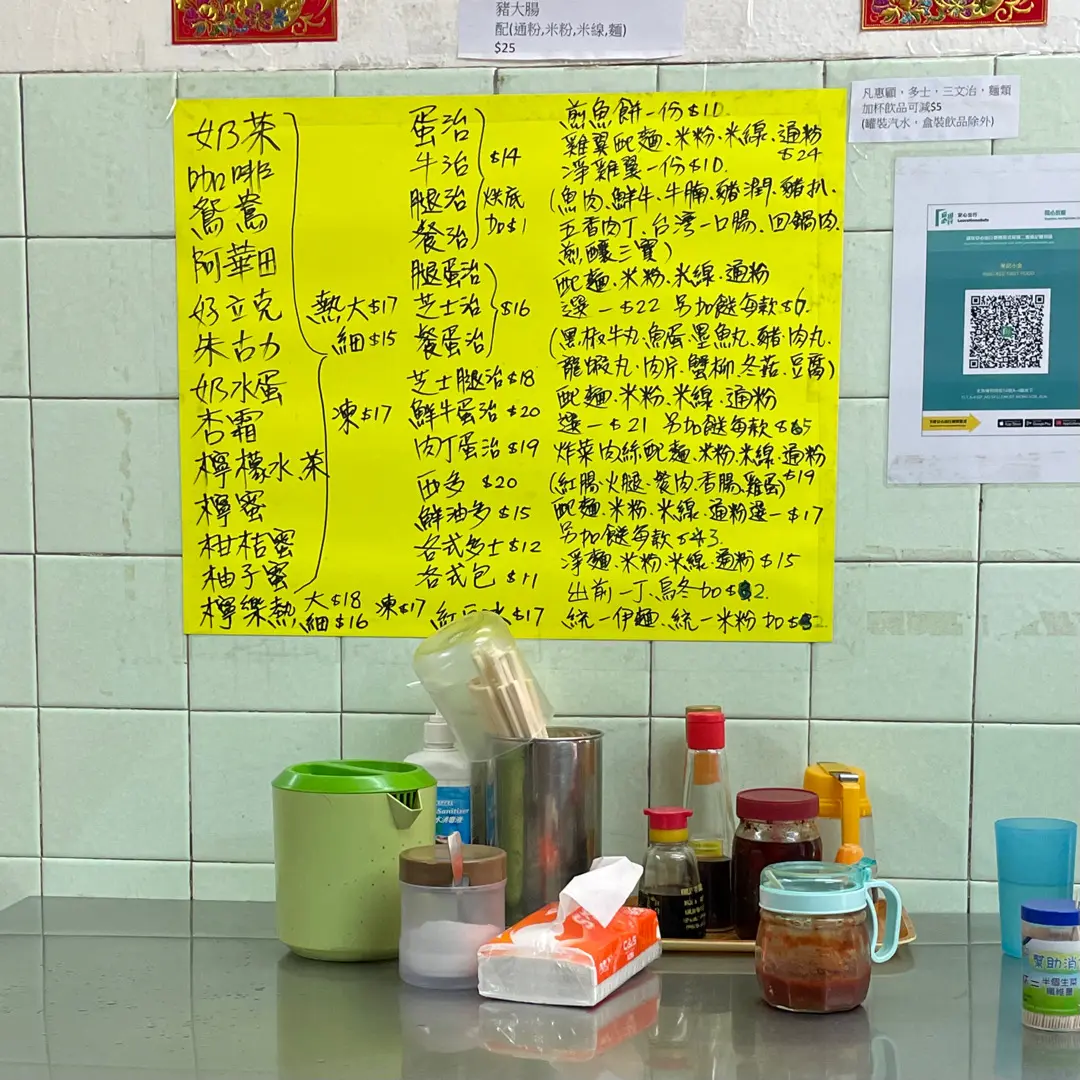 豬大腸
配(通粉,米粉,米線,麵)
$25
凡惠顧，多士，三文治，麵類
加杯飲品可減$5
(罐裝汽水，盒裝飲品除外)
奶茶
咖啡
鴛鴦
阿華田
好立克
朱古力
奶水蛋
杏霜
檸檬水.茶
檸蜜
柑桔蜜
柚子蜜
熱大$17
細$15
凍$17
檸樂熱 大$18 細$16 凍$17
$17
蛋治
牛治
腿治
餐治
$14
烘底
加$1
腿蛋治
芝士治
餐蛋治
$16
芝士腿治$18
鮮牛蛋治 $20
肉丁蛋治 $19
西多 $20
鮮油多 $15
各式多士 $12
各式包 $11
煎魚餅一份$10
雞翼配麵.米粉.米線.通粉
$24
淨雞翼一份$10.
(魚肉.鮮牛.牛腩.豬潤.豬扒.
五香肉丁.台灣一口腸.回鍋肉.
煎釀三寶)
配麵.米粉.米線.通粉
選一$22 另加餸每款$6.
(黑椒牛丸.魚蛋.墨魚丸.豬肉丸.
龍蝦丸.肉片.蟹柳.冬菇.豆腐)
配麵.米粉.米線.通粉
選一$21 另加餸每款
炸菜肉絲配麵.米粉.米線.通粉
$19
(紅腸.火腿.餐肉.香腸.雞蛋)
配麵.米粉.米線.通粉選一$17
另加餸每款
淨麵.米粉.米線.通粉$15
出前一丁.烏冬加
統一伊麵.統一米粉加
安心出行
LeaveHomeSafe
Sanitizer
幫助消
半個生菜
纖維量